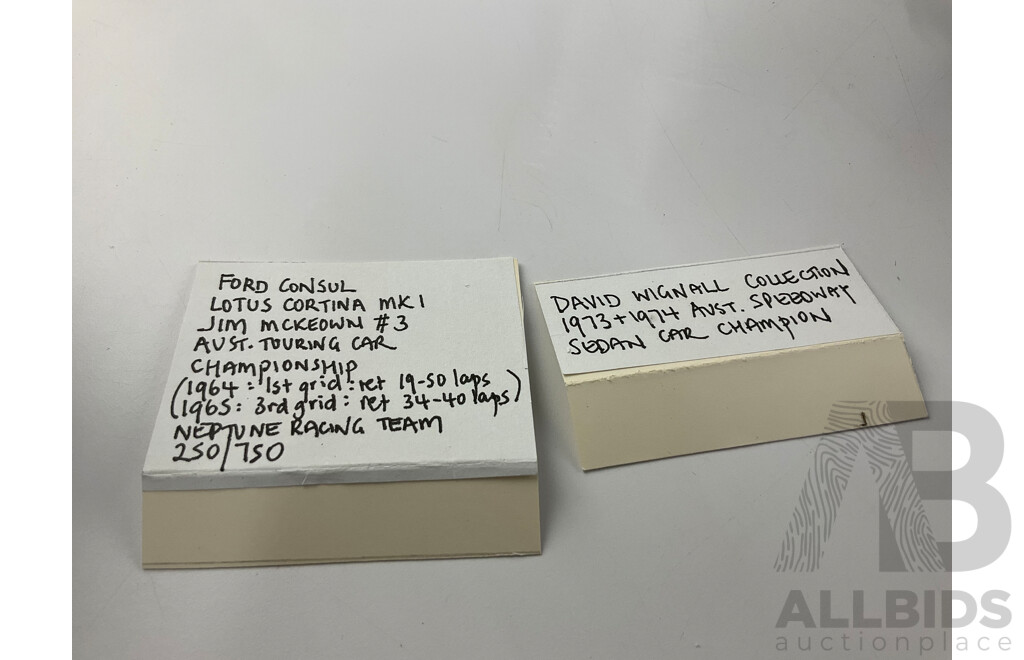 FORD CONSUL
LOTUS CORTINA MK1
JIM MCKEOWN #3
AUST. TOURING CAR
CHAMPIONSHIP
(1964: 1st grid: ret 19-50 laps)
(1965: 3rd grid: ret 34-40 laps)
NEPTUNE RACING TEAM
250/750
DAVID WIGNALL COLLECTION
1973+1974 AUST. SPEEDWAY
SEDAN CAR CHAMPION
AB
ALLBIDS
auctionplace